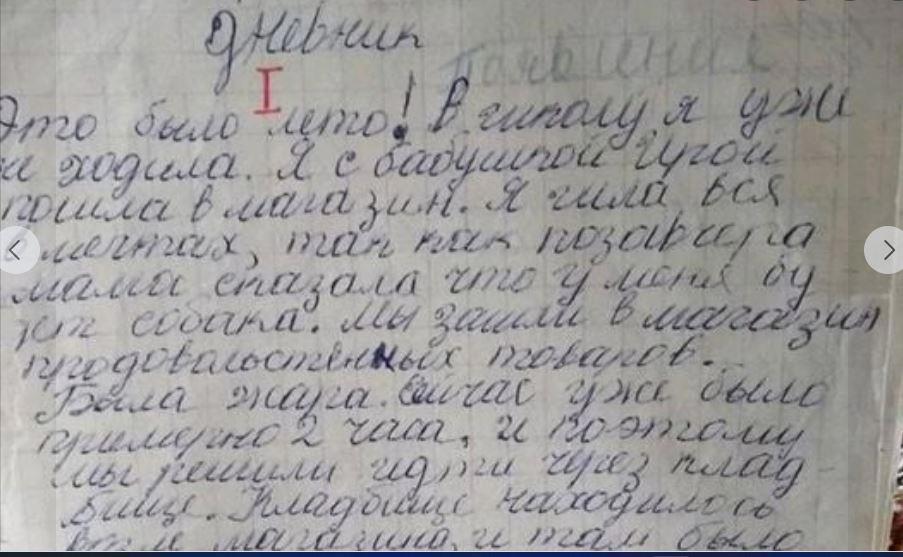 Дневник
I
Это было лето! В школу я уже
не ходила. Я с бабушкой Ирой
пошла в магазин. Я шла вся
в мечтах, так как позавчера
мама сказала что у меня бу
дет собака. Мы зашли в магазин
продовольственных товаров.
Была жара. Сичас уже было
примерно 2 часа, и поэтому
мы решили идти через клад-
бище. Кладбище находилось
возле магазина, и там было